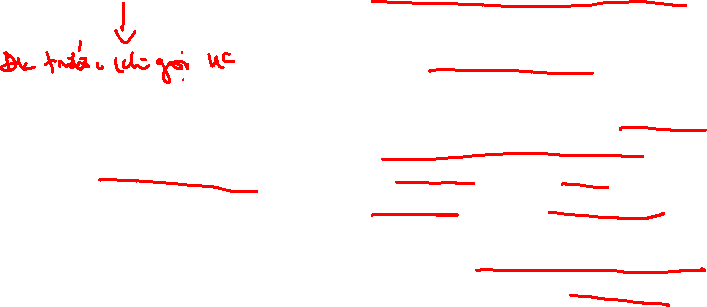 Đk trước khi gọi HC